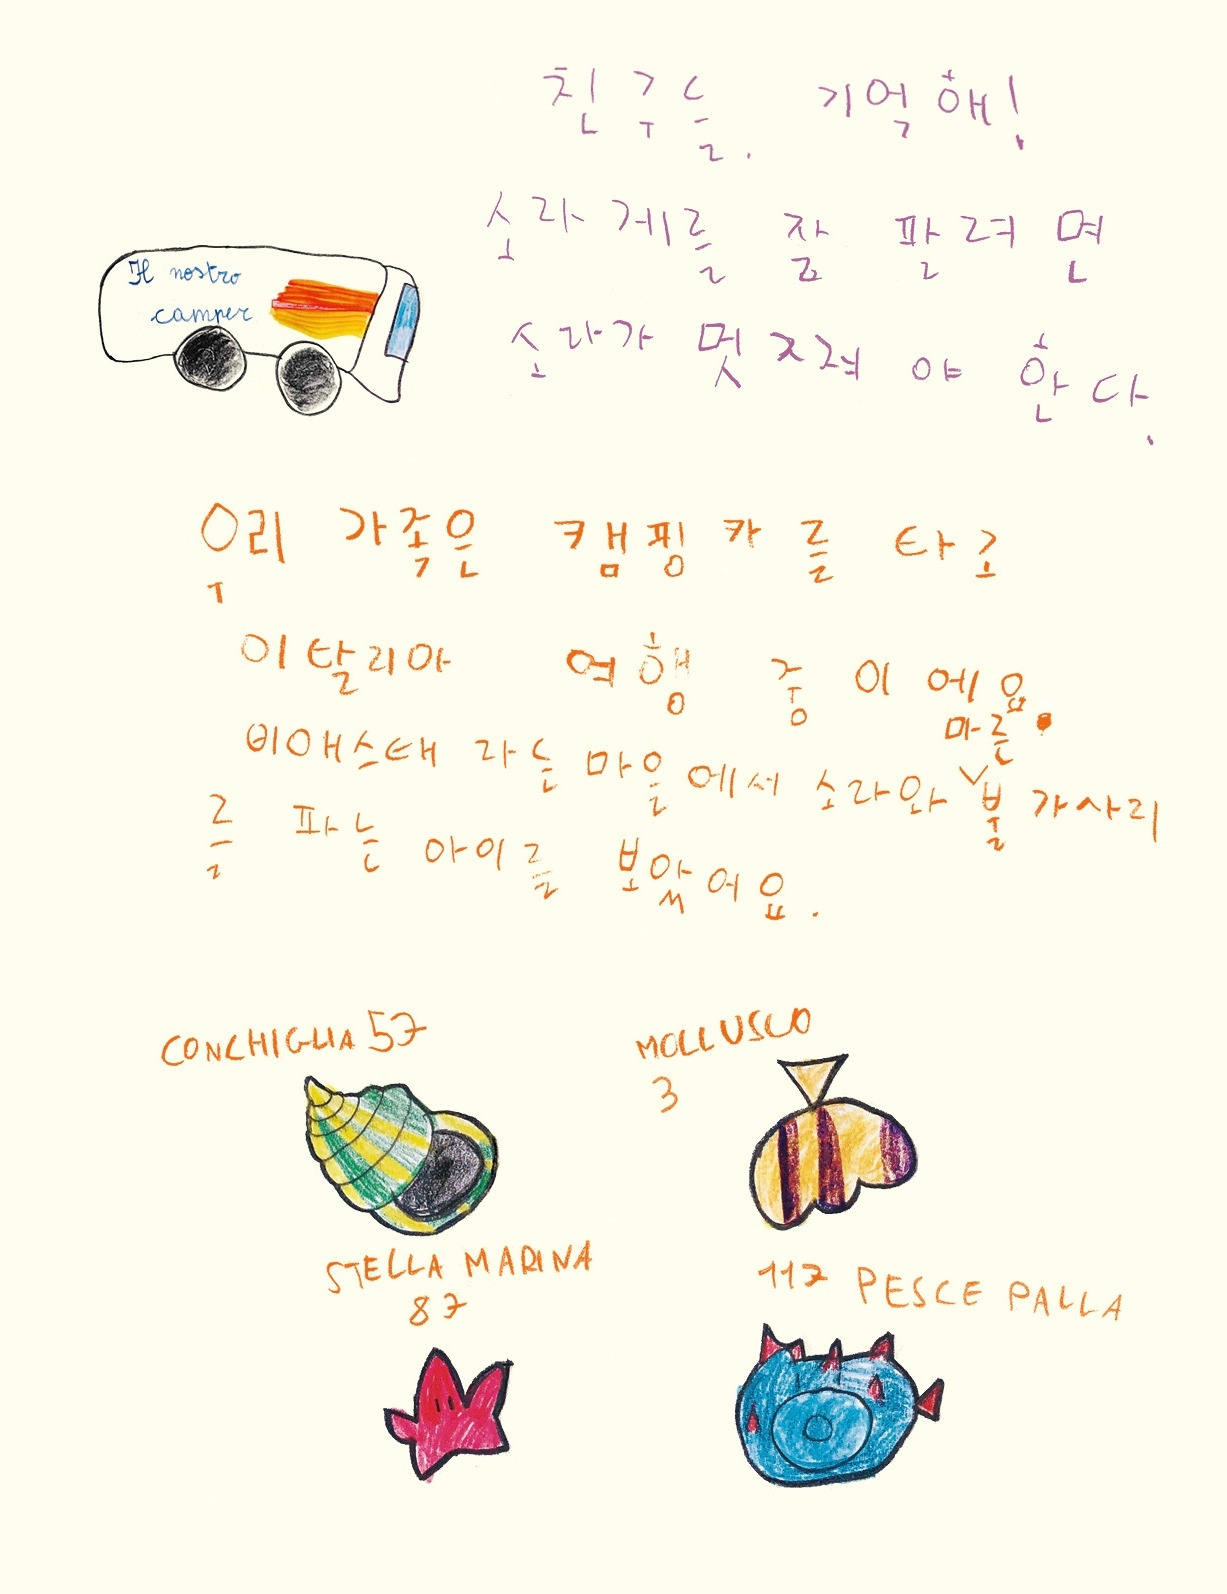 친구들. 기억해!
소라게를 잘 팔려면
소라가 멋져야 한다.
Il nostro
camper
우리 가족은 캠핑카를 타고
이탈리아 여행 중이에요.
비애스태 라는 마을에서 소라와 마른 불가사리
를 파는 아이를 보았어요.
CONCHIGLIA 57
MOLLUSCO
3
STELLA MARINA
87
117 PESCE PALLA